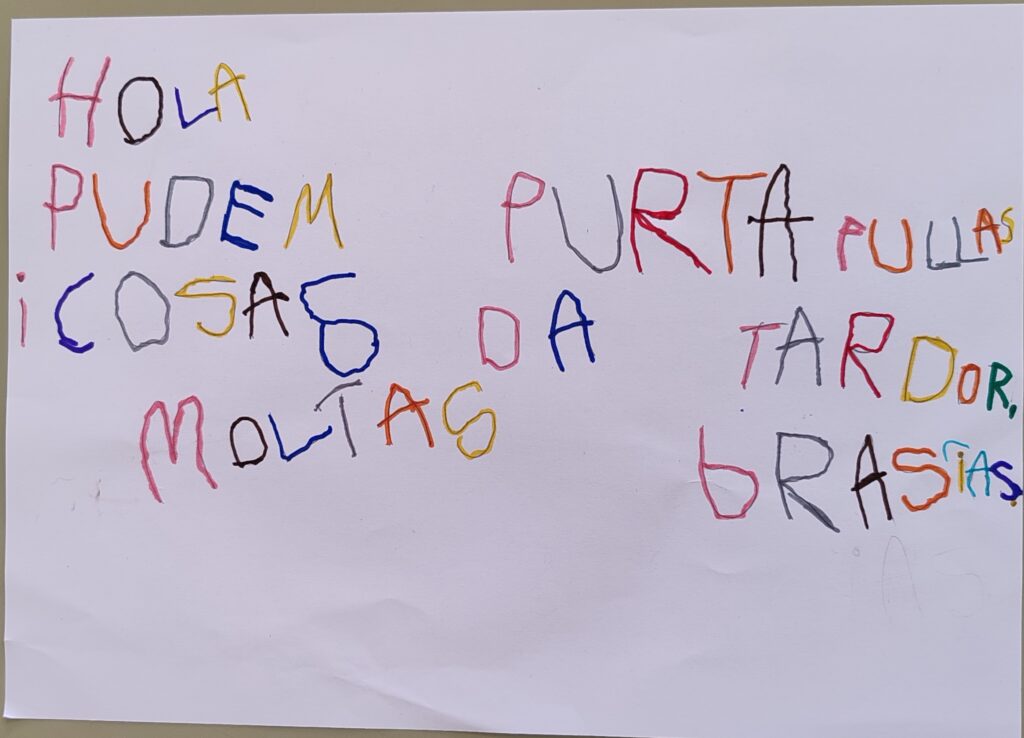 HOLA
PUDEM PURTA PULLAS
i COSAS DA TARDOR,
MOLTAS GRASiAS.
iAS